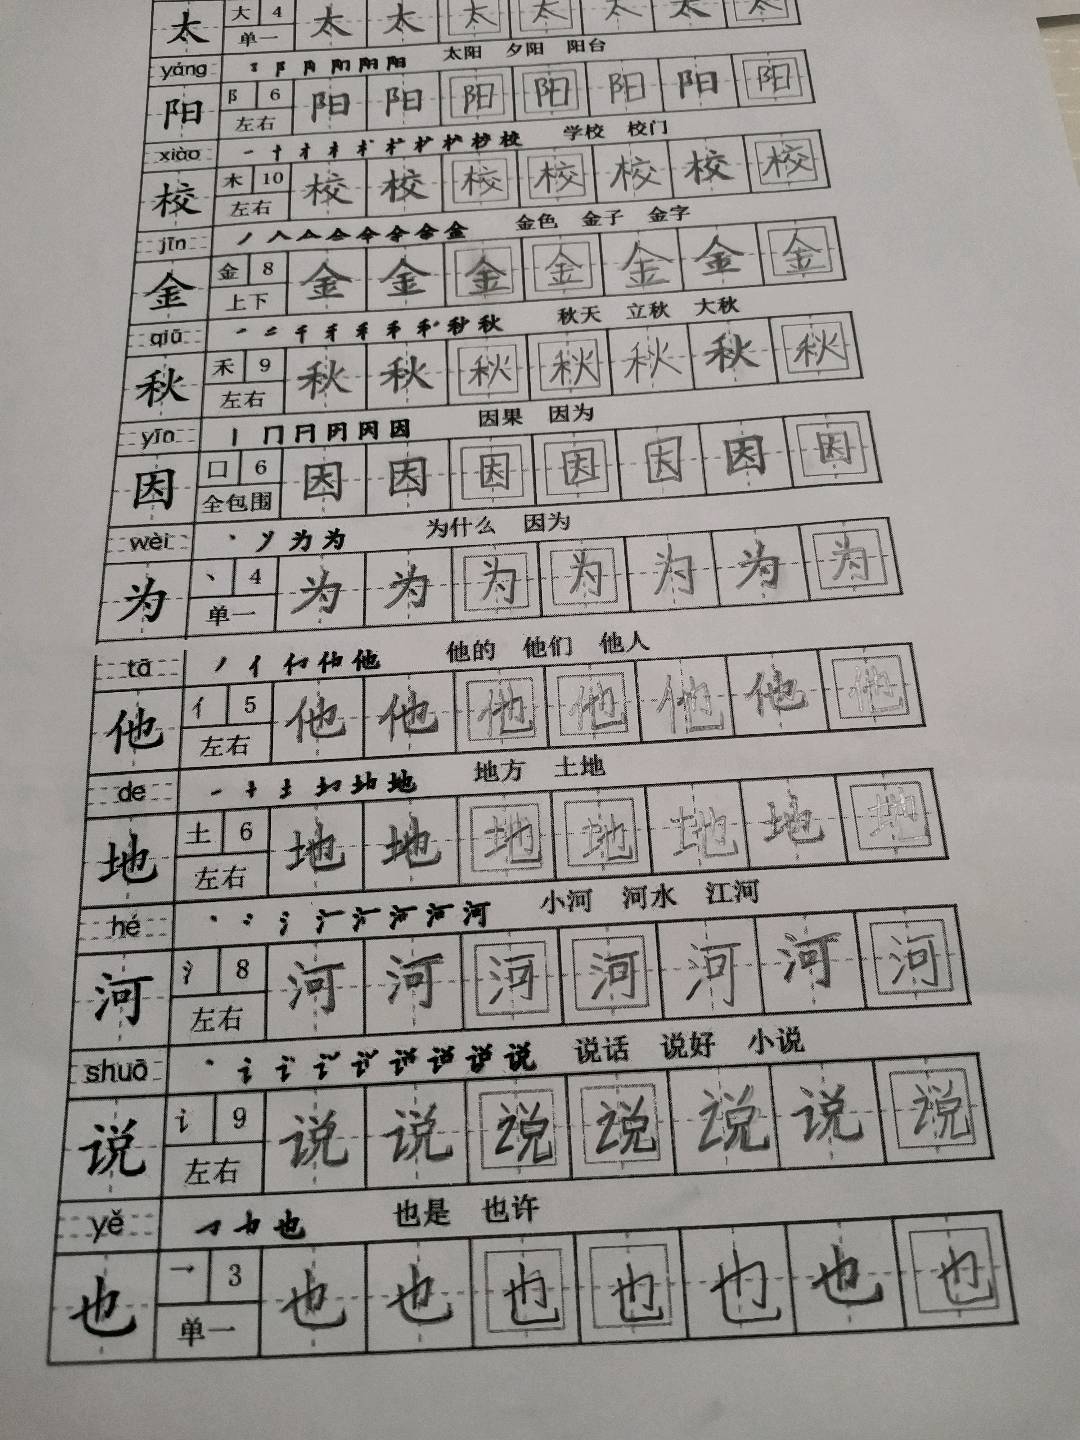 太 大 4 太 太 太 太 太 太 太
单一
yáng 阝 阳 太阳 夕阳 阳台
阳 阝 6 阳 阳 阳 阳 阳 阳 阳
左右
xiào 一 十 才 木 校 学校 校门
校 木 10 校 校 校 校 校 校 校
左右
jīn 丿 人 金 金色 金子 金字
金 金 8 金 金 金 金 金 金 金
上下
qiū 一 二 千 禾 秋 秋天 立秋 大秋
秋 禾 9 秋 秋 秋 秋 秋 秋 秋
左右
yīn 丨 冂 因 因果 因为
因 口 6 因 因 因 因 因 因 因
全包围
wèi 丶 为 为 为什么 因为
为 丶 4 为 为 为 为 为 为 为
单一
tā 丿 亻 他 他的 他们 他人
他 亻 5 他 他 他 他 他 他 他
左右
de 一 十 土 地 地方 土地
地 土 6 地 地 地 地 地 地 地
左右
hé 丶 冫 氵 河 小河 河水 江河
河 氵 8 河 河 河 河 河 河 河
左右
shuō 丶 讠 说 说话 说好 小说
说 讠 9 说 说 说 说 说 说 说
左右
yě 也 也是 也许
也 乛 3 也 也 也 也 也 也 也
单一